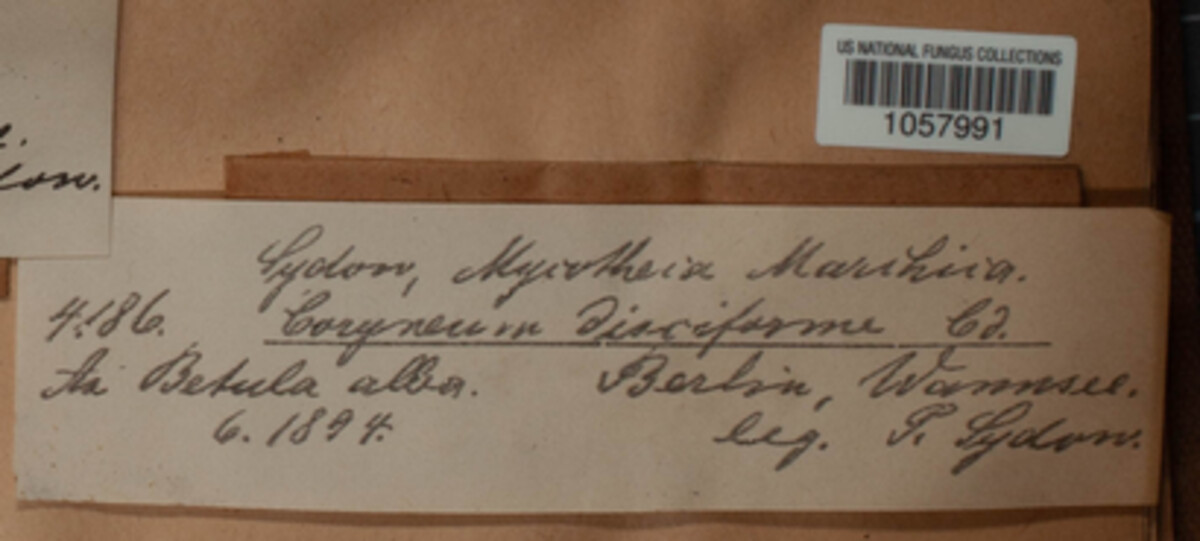 US NATIONAL FUNGUS COLLECTIONS
1057991
Sydow, Mycotheca Marchica.
4186. Coryneum disciforme Cd.
Ad Betula alba. Berlin, Wannsee.
6. 1894. leg. P. Sydow.